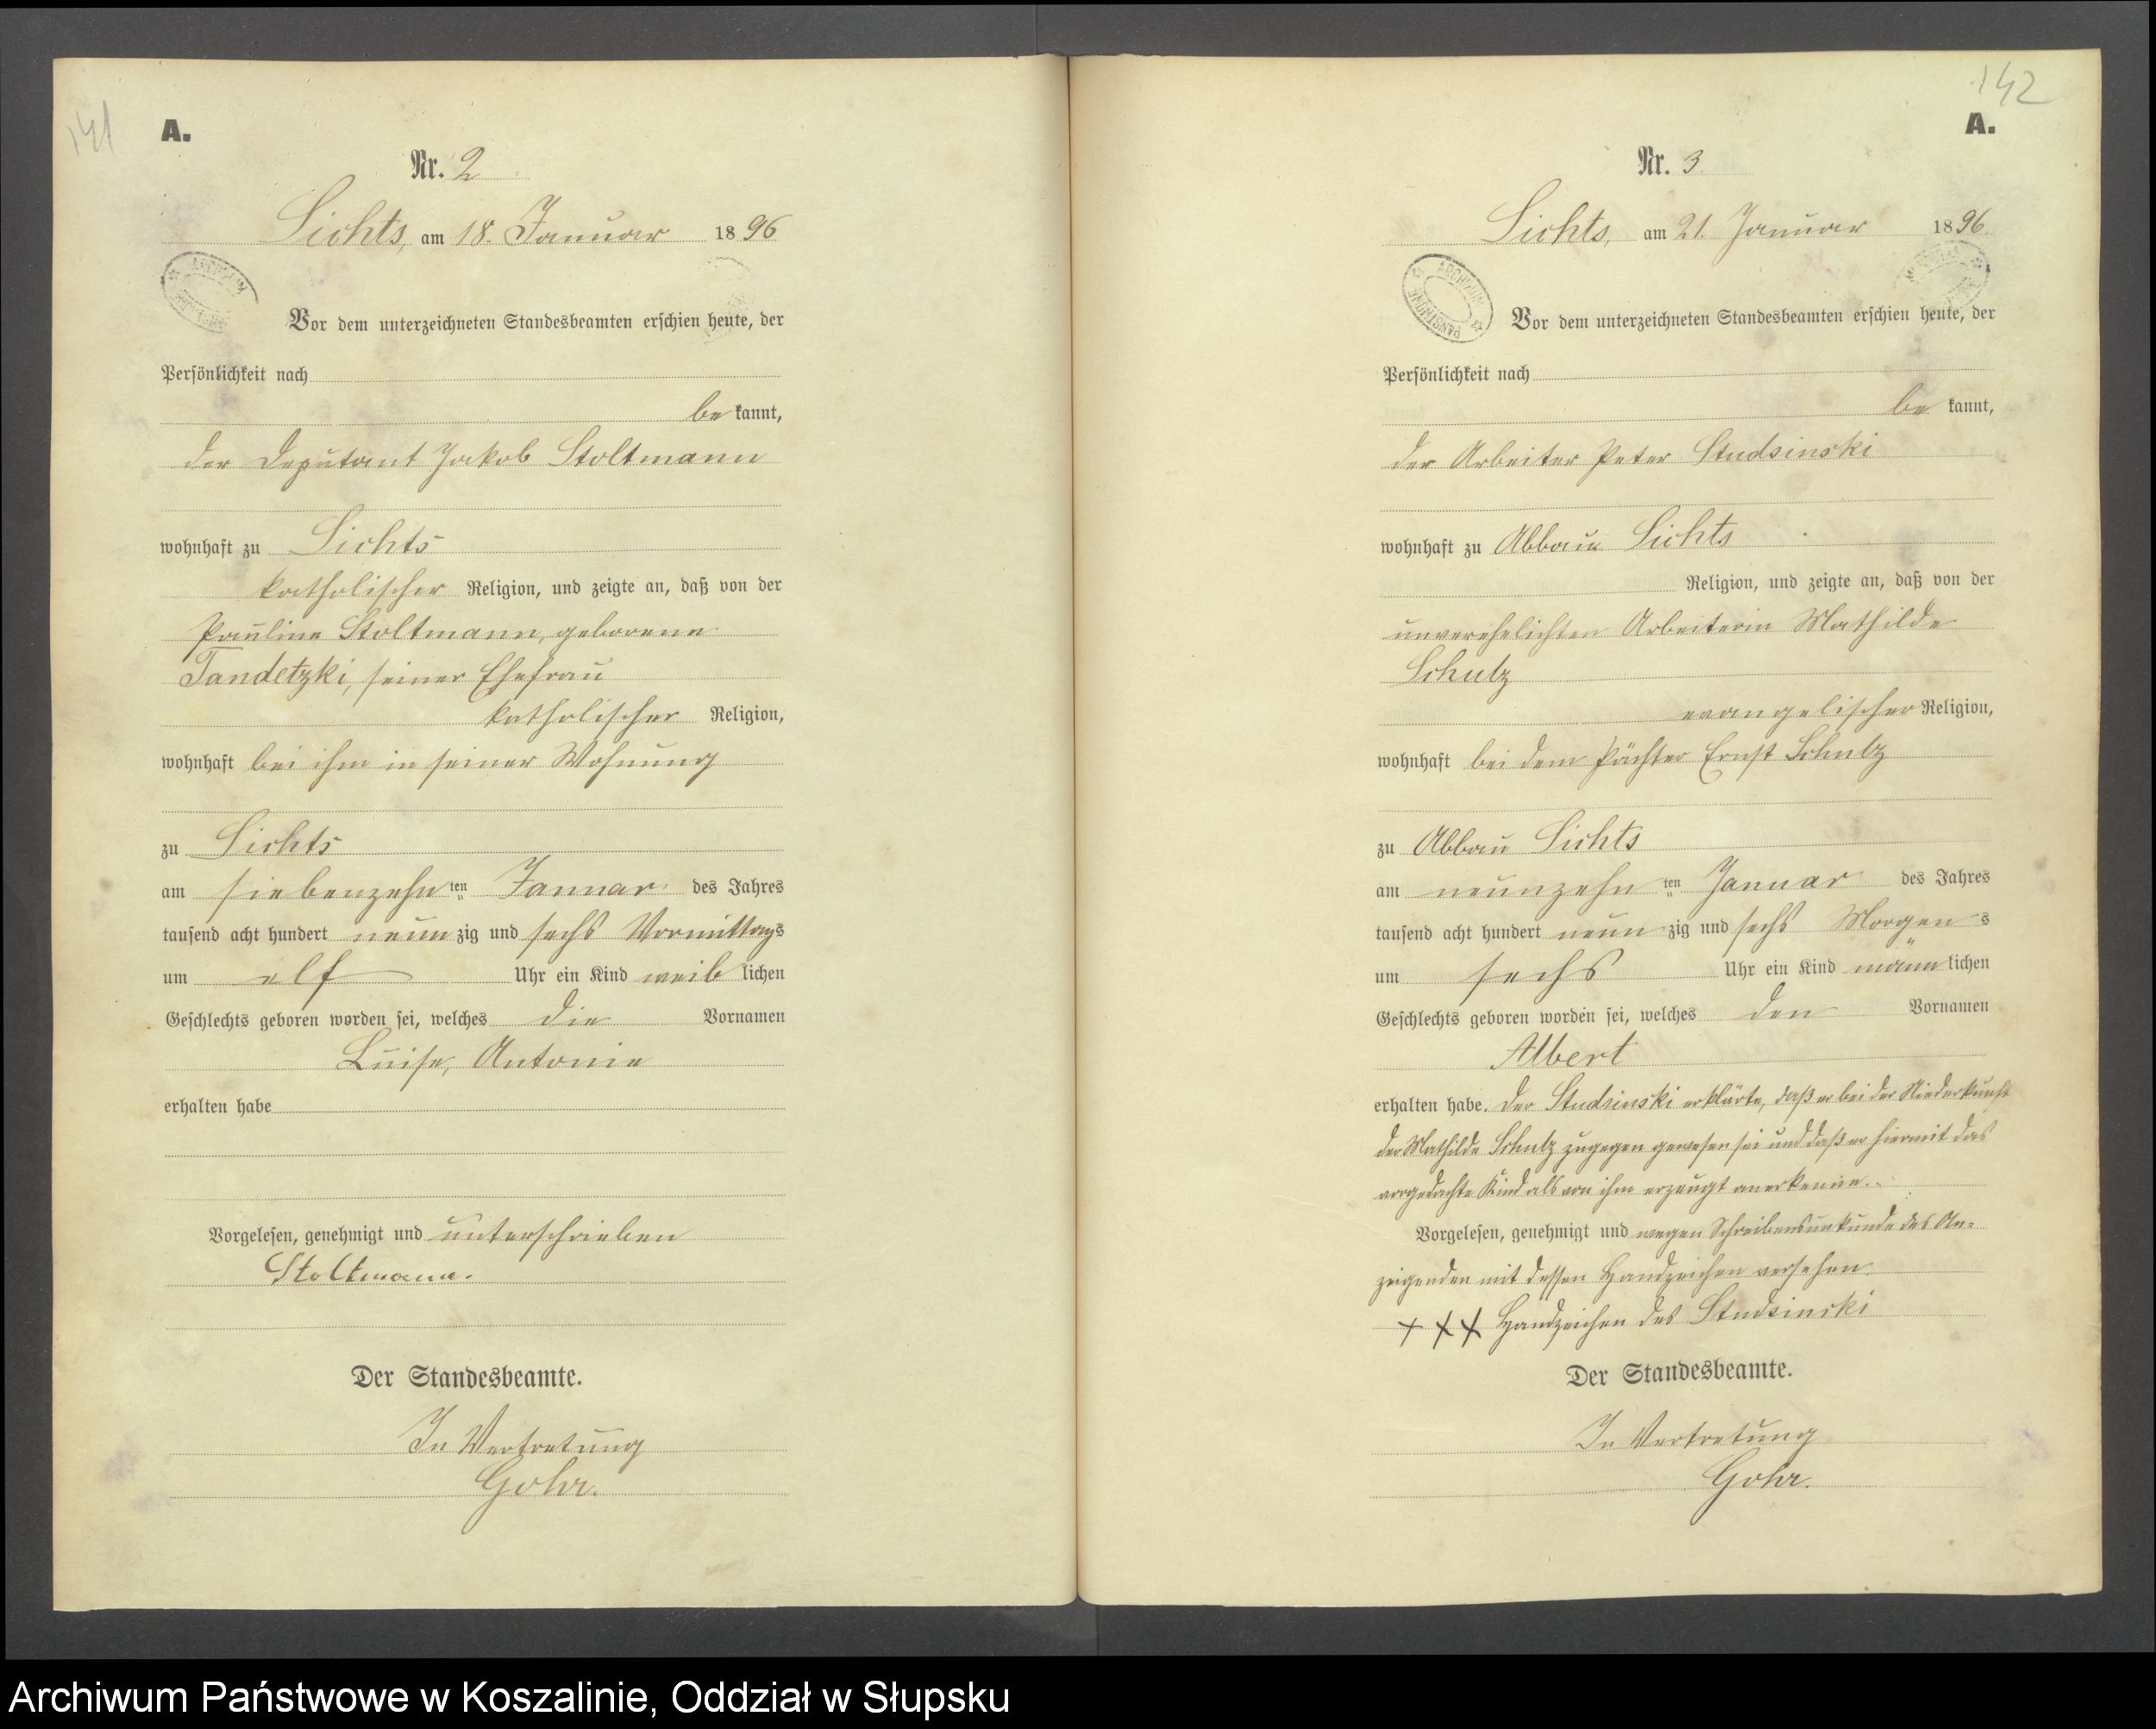 141
A.
Nr. 2
Lichts, am 18. Januar 1896
Vor dem unterzeichneten Standesbeamten erschien heute, der
Persönlichkeit nach
be kannt,
der Deputant Jakob Stoltmann
wohnhaft zu Lichts
katholischer Religion, und zeigte an, daß von der
Pauline Stoltmann, geborene
Tandetzki, seiner Ehefrau
katholischer Religion,
wohnhaft bei ihm in seiner Wohnung
zu Lichts
am siebenzehn ten Januar des Jahres
tausend acht hundert neun zig und sechs Vormittags
um elf Uhr ein Kind weib lichen
Geschlechts geboren worden sei, welches die Vornamen
Luise, Antonie
erhalten habe
Vorgelesen, genehmigt und unterschrieben
Stoltmann.
Der Standesbeamte.
In Vertretung
Gohr.
142
A.
Nr. 3.
Lichts, am 21. Januar 1896.
ARCHIWUM PAŃSTWOWE
Vor dem unterzeichneten Standesbeamten erschien heute, der
Persönlichkeit nach
be kannt,
der Arbeiter Peter Studsinski
wohnhaft zu Abbau Lichts
Religion, und zeigte an, daß von der
unverehelichten Arbeiterin Mathilde
Schulz
evangelischer Religion,
wohnhaft bei dem Pächter Ernst Schulz
zu Abbau Lichts
am neunzehn ten Januar des Jahres
tausend acht hundert neun zig und sechs Morgen s
um sechs Uhr ein Kind männ lichen
Geschlechts geboren worden sei, welches den Vornamen
Albert
erhalten habe. Der Studsinski erklärte, daß er bei der Niederkunft
der Mathilde Schulz zugegen gewesen sei und daß er hiermit das
vorgedachte Kind als von ihm erzeugt anerkenne.
Vorgelesen, genehmigt und wegen Schreibensunkunde des An-
zeigenden mit dessen Handzeichen versehen.
+++ Handzeichen des Studsinski
Der Standesbeamte.
In Vertretung
Gohr.
Archiwum Państwowe w Koszalinie, Oddział w Słupsku